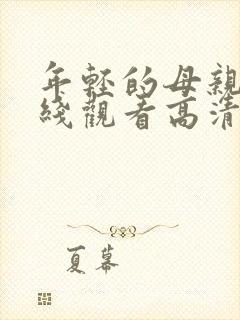 年輕的母親
綫觀看高清
夏幕